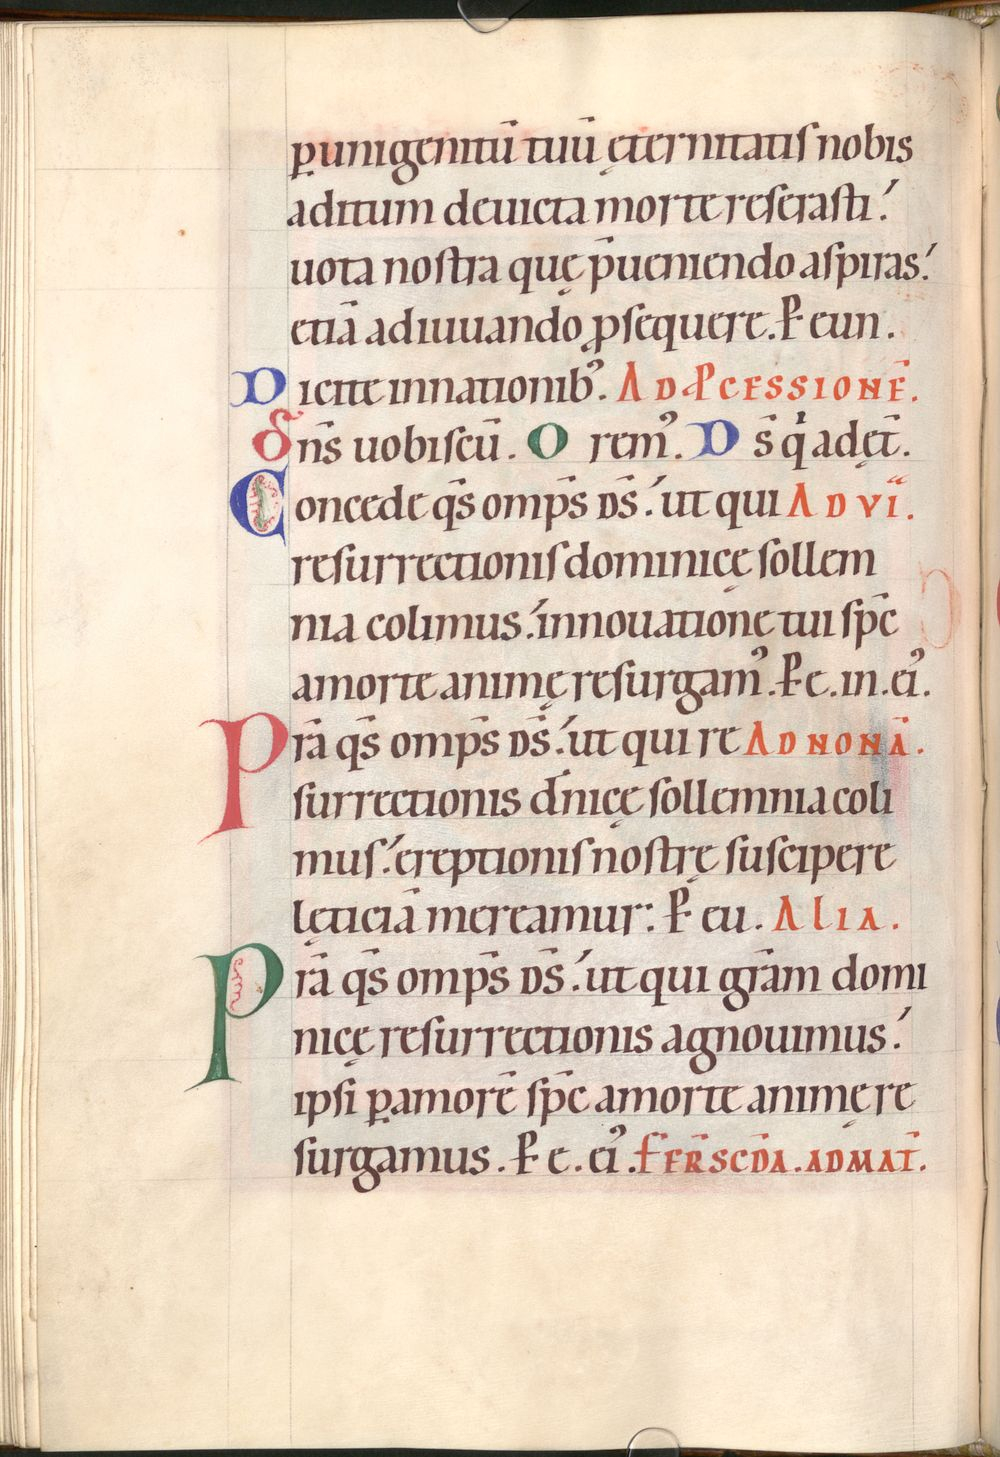 ꝑ unigenitū tuū ęternitatis nobis
aditum deuicta morte reserasti.
uota nostra quę p̄ueniendo aspiras.
etiā adiuuando ꝓsequere. P̄ eun.
Dicite in nationib’. AD PCESSIONĒ.
Dn̄s uobiscū. Orem’. Ds̄ q̍ ad ęt̄.
Concede qs̄ omp̄s Ds̄. ut qui AD VĪ.
resurrectionis dominicę sollem
nia colimus. innouatione tui sp̄c
a morte animę resurgam’. P̄ e. in. ei’.
Prā qs̄ omp̄s Ds̄. ut qui re AD NONĀ.
surrectionis dn̄icę sollemnia coli
mus. ereptionis nostrę suscipere
lęticiā mereamur. P̄ eu. ALIA.
Prā qs̄ omp̄s Ds̄. ut qui grām domi
nicę resurrectionis agnouimus.
ipsi ꝑ amorē sp̄c a morte animę re
surgamus. P̄ e. ei’. FER̄ SCDĀ. AD MAT̄.